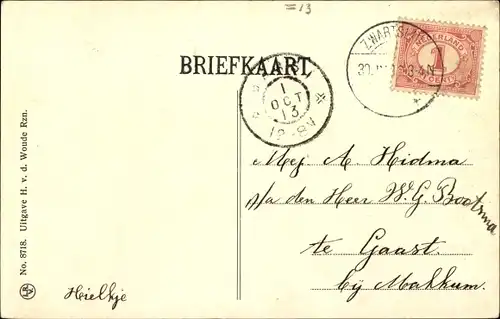 =13
BRIEFKAART
ZWARTSLUIS
NEDERLAND
1
CENT
1
OCT
13
12-8N
Mej A. Hidma
p/a den Heer W.G. Bootsma
te Gaast.
bij Makkum.
Hielkje
No. 8718. Uitgave H. v. d. Woude Rzn.